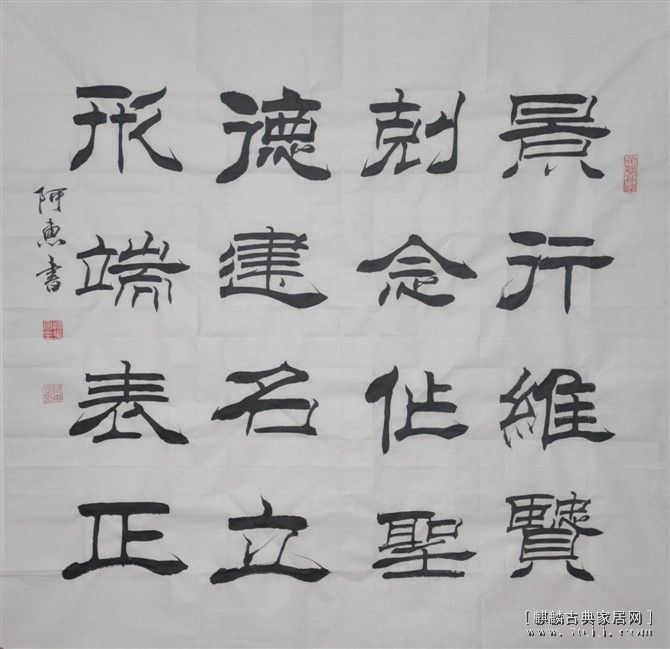 景行維賢
剋念作聖
德建名立
形端表正
阿惠書
[麒麟古典家居网]